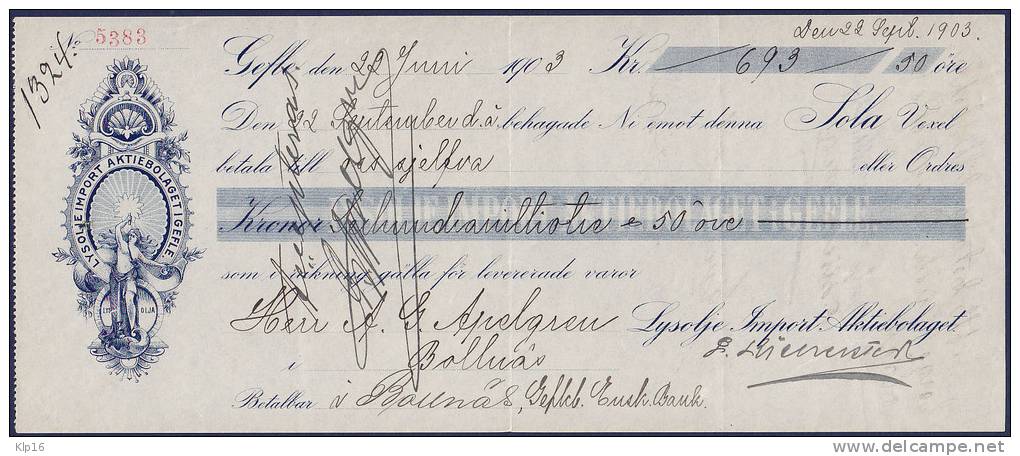 Den 22 Sept. 1903.
No 5383
1324.
Gefle den 22 Juni 1903 Kr. 693 50 öre
Den 22 September d.å. behagade Ni emot denna Sola Vexel
betala till oss sjelfva eller Ordres
Kronor 50 öre
som i räkning gälla för levererade varor
LYSOLJE IMPORT AKTIEBOLAGET I GEFLE.
OLJA
Herr A. G. Apelgren Lysolje Import-Aktiebolaget.
i Bollnäs
Betalbar i Bollnäs, Gefleb. Ensk. Bank.
Klp16
delcampe.net